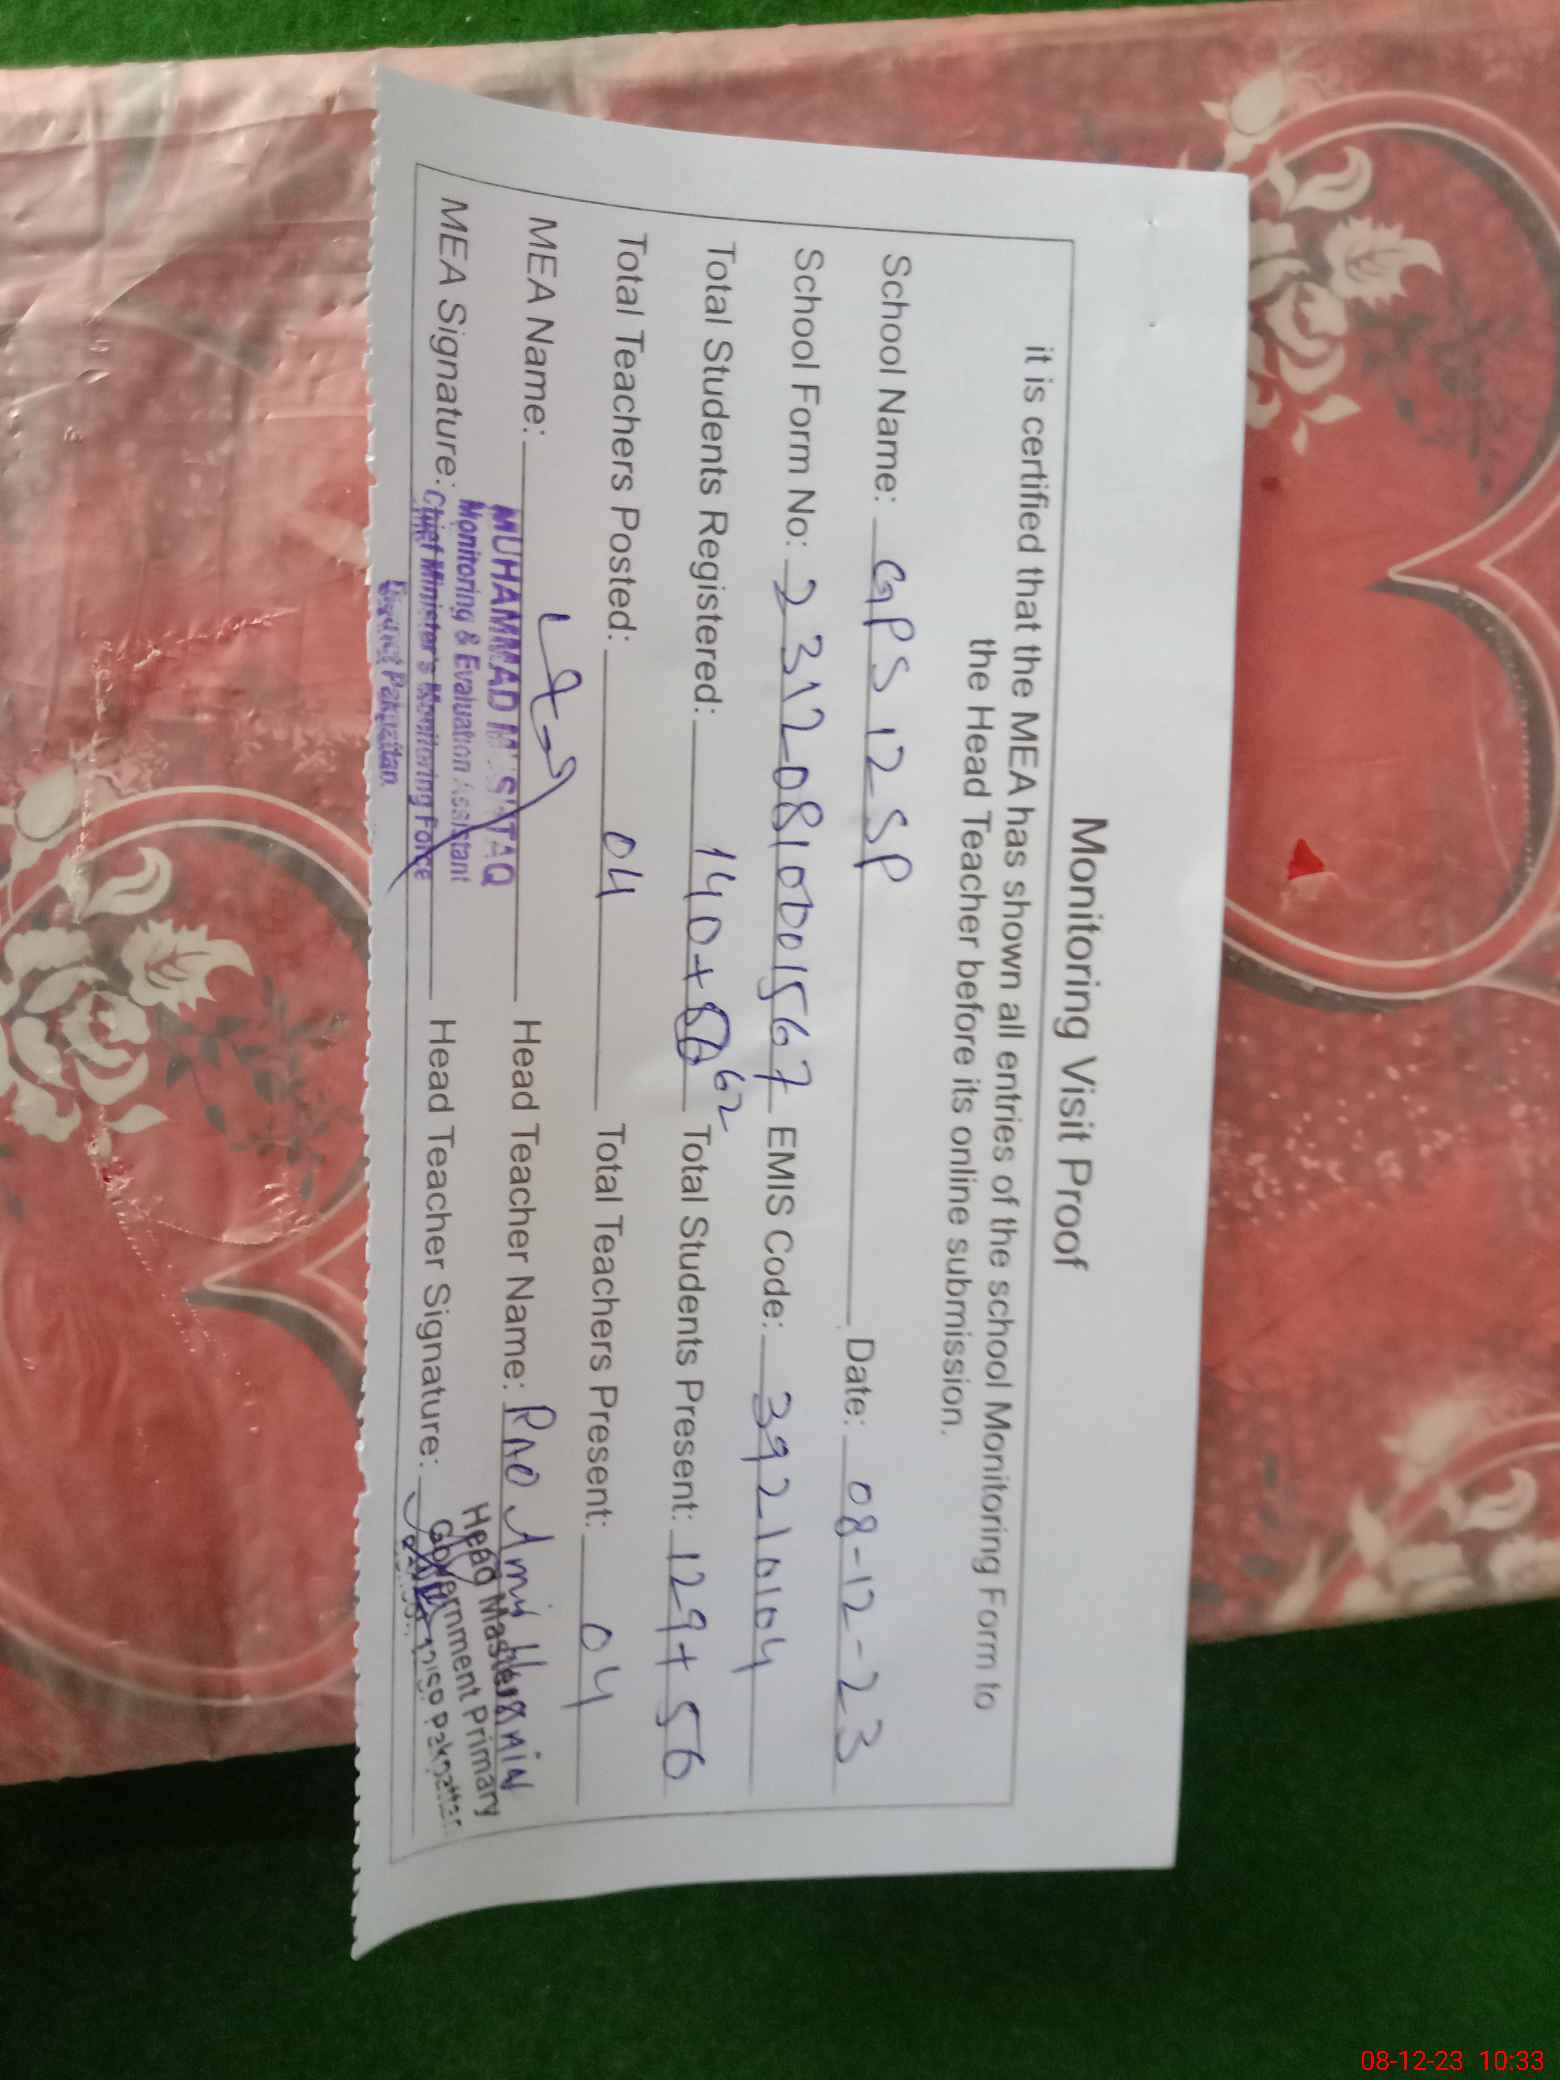 Monitoring Visit Proof
it is certified that the MEA has shown all entries of the school Monitoring Form to
the Head Teacher before its online submission.
School Name: GPS 12 SP Date: 08-12-23
School Form No: 23120810001567 EMIS Code: 39210104
Total Students Registered: 140+ 62 Total Students Present: 129+56
Total Teachers Posted: 04 Total Teachers Present: 04
MEA Name: Head Teacher Name: RAO Amir
MUHAMMAD MUSHTAQ
Monitoring & Evaluation Assistant
Chief Minister's Monitoring Force
District Pakpattan.
MEA Signature: Head Teacher Signature:
Head Master
Government Primary
12/SP Pakpattan
08-12-23 10:33